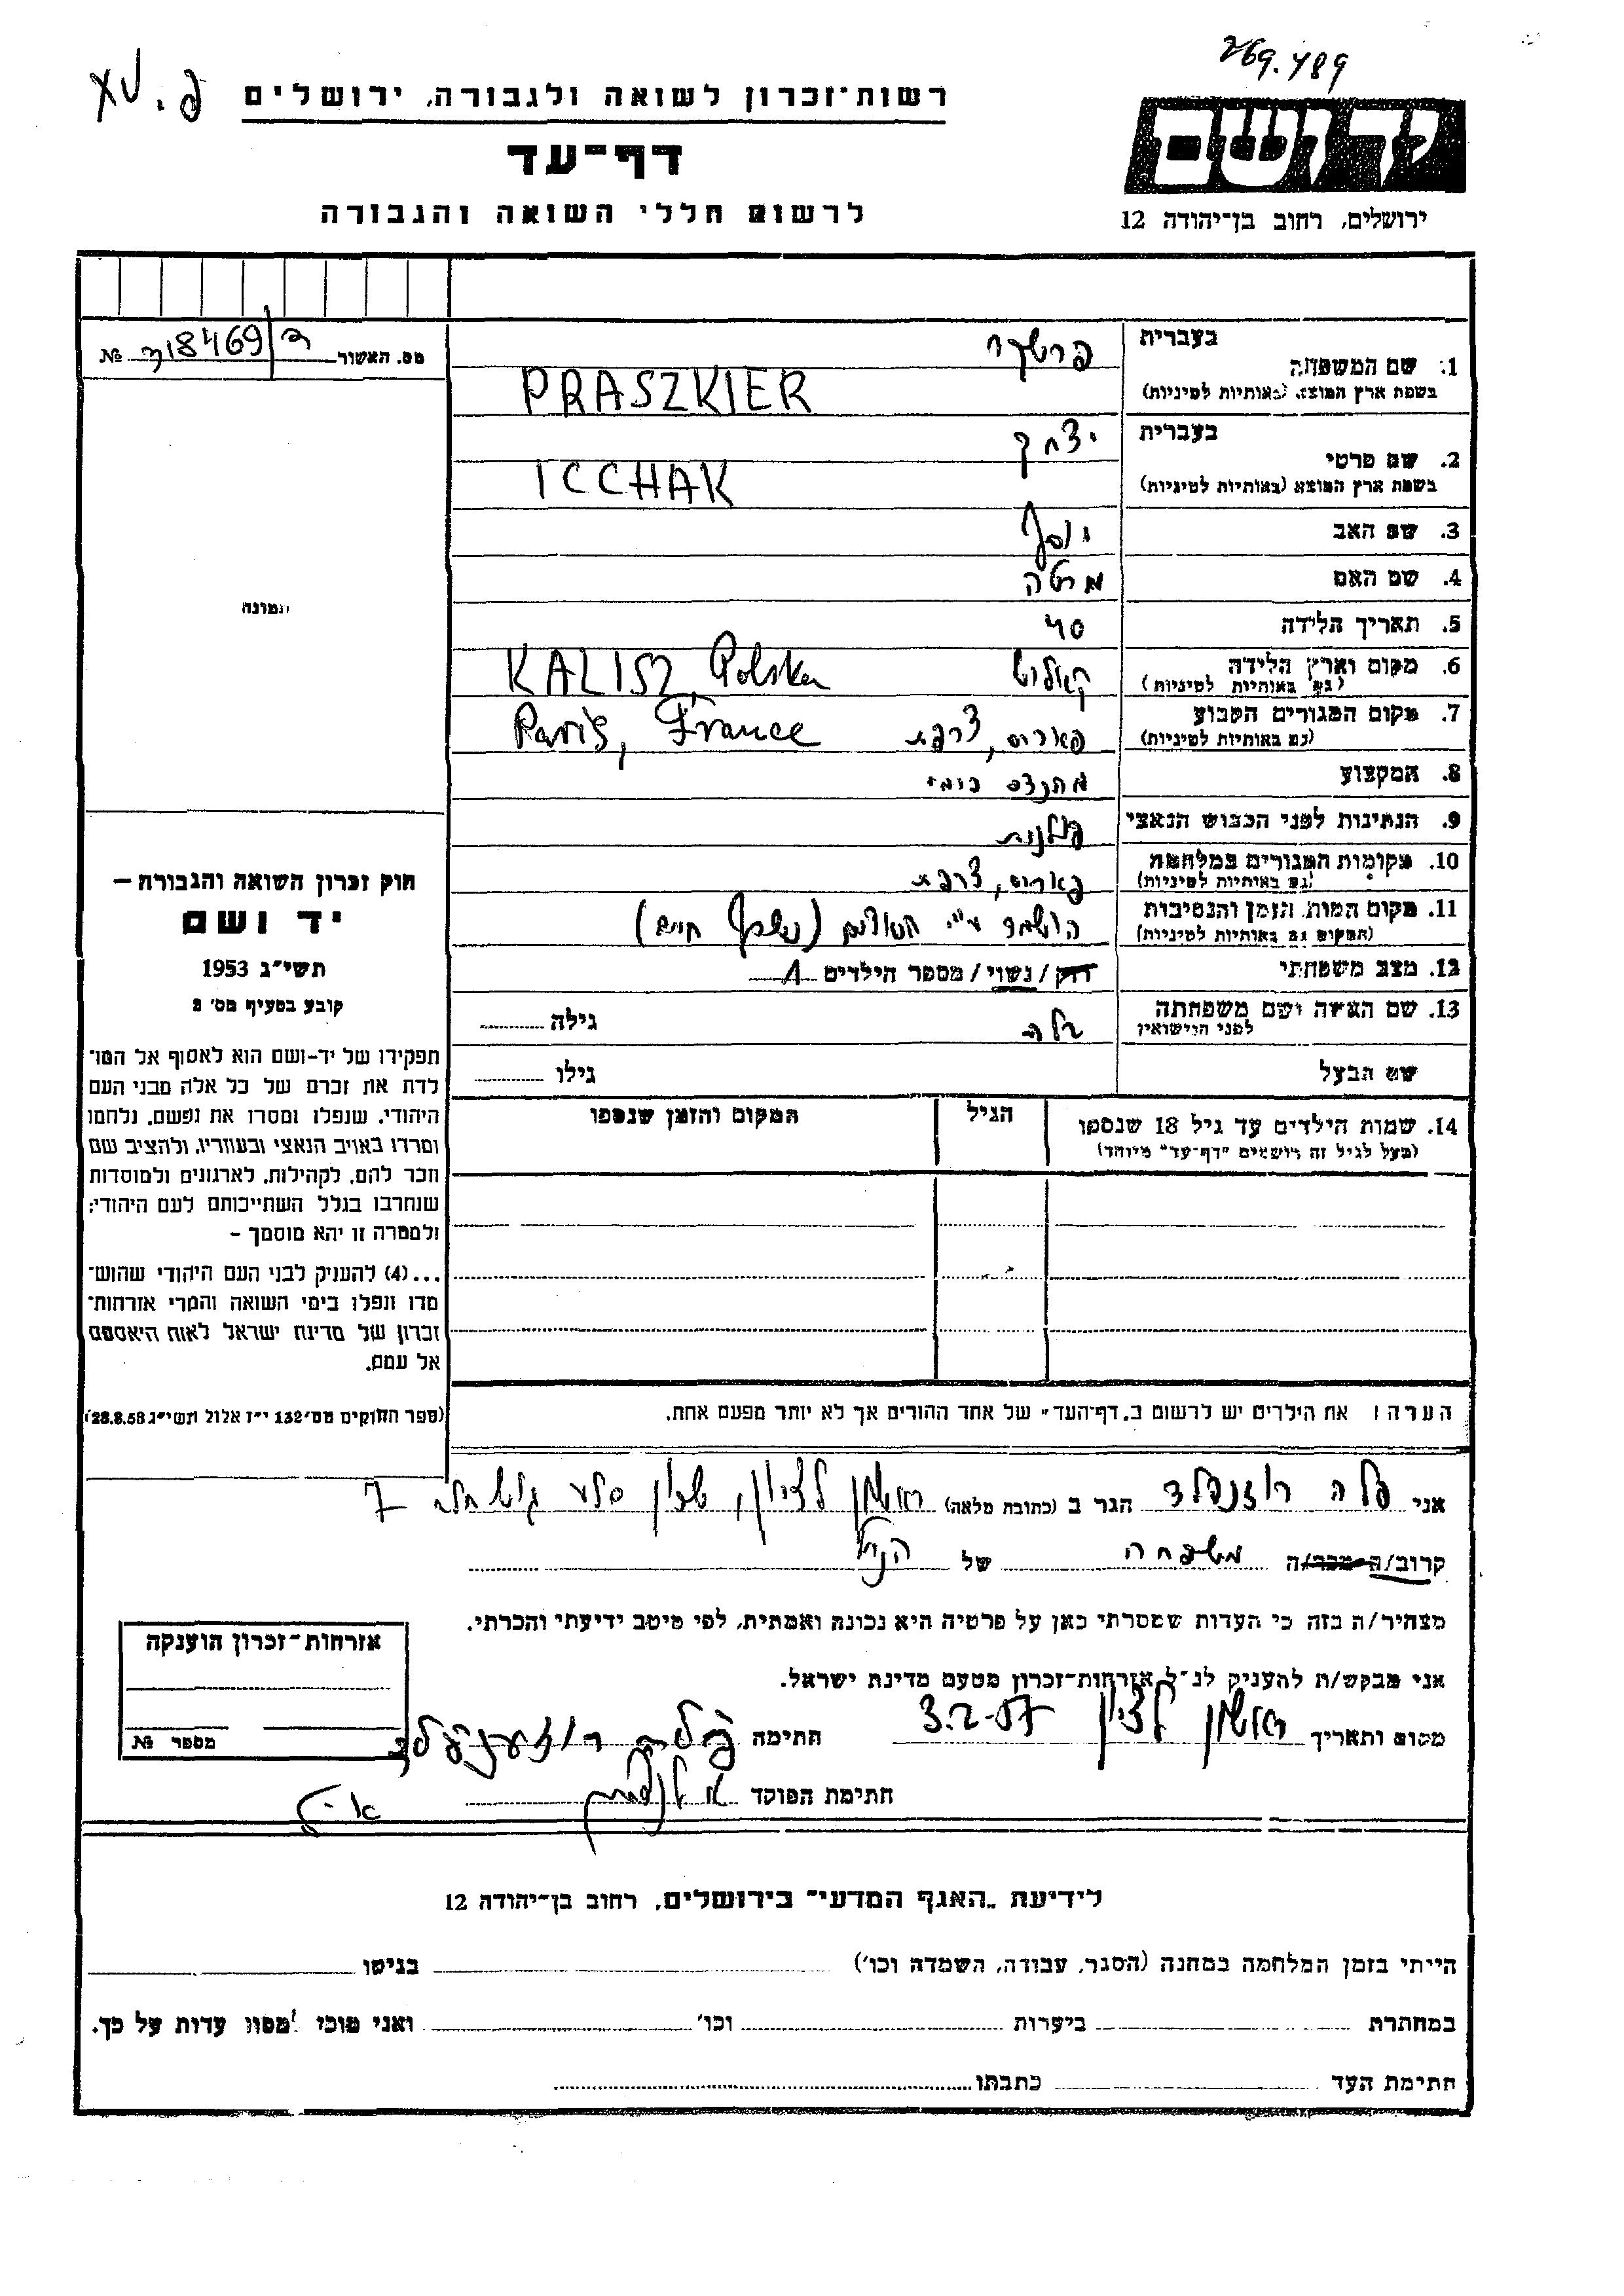 269.789
פ. XV
רשות־זכרון לשואה ולגבורה, ירושלים
דף־עד
לרשום חללי השואה והגבורה
יד ושם
ירושלים, רחוב בן־יהודה 12
מס. האשור 318469/ № ב
בעברית
1. שם המשפחה פרשקר
בשפת ארץ המוצא (באותיות לטיניות) PRASZKIER
בעברית יצחק
2. שם פרטי
בשפת ארץ המוצא (באותיות לטיניות) ICCHAK
3. שם האב יוסף
4. שם האם
5. תאריך הלידה 40
6. מקום וארץ הלידה קאליש KALISZ, Polska
(גם באותיות לטיניות)
7. מקום המגורים הקבוע פאריס, צרפת Paris, France
(גם באותיות לטיניות)
8. המקצוע מהנדס כימי
9. הנתינות לפני הכבוש הנאצי פולנית
10. מקומות המגורים במלחמה פאריס, צרפת
(גם באותיות לטיניות)
11. מקום המות, הזמן והנסיבות הושמד ע"י הנאצים
(המקום גם באותיות לטיניות)
12. מצב משפחתי רווק / נשוי / מספר הילדים 1
13. שם האשה ושם משפחתה בלה גילה
לפני הנישואין
שם הבעל גילו
14. שמות הילדים עד גיל 18 שנספו הגיל המקום והזמן שנספו
(מעל לגיל זה רושמים "דף־עד" מיוחד)
הערה: את הילדים יש לרשום ב„דף־העד" של אחד ההורים אך לא יותר מפעם אחת.
תמונה
חוק זכרון השואה והגבורה —
יד ושם
תשי"ג 1953
קובע בסעיף מס' 2
תפקידו של יד-ושם הוא לאסוף אל המו־
לדת את זכרם של כל אלה מבני העם
היהודי, שנפלו ומסרו את נפשם, נלחמו
ומרדו באויב הנאצי ובעוזריו, ולהציב שם
וזכר להם, לקהילות, לארגונים ולמוסדות
שנחרבו בגלל השתייכותם לעם היהודי;
ולמטרה זו יהא מוסמך –
...(4) להעניק לבני העם היהודי שהוש־
מדו ונפלו בימי השואה והמרי אזרחות־
זכרון של מדינת ישראל לאות היאספם
אל עמם.
(ספר החוקים מס' 132 י"ז אלול תשי"ג 28.8.53)
אני בלה רוזנפלד הגר ב (כתובת מלאה) ראשון לציון, שכון סלע 7
קרוב/ה מכר/ה משפחה של הנ"ל
מצהיר/ה בזה כי העדות שמסרתי כאן על פרטיה היא נכונה ואמתית, לפי מיטב ידיעתי והכרתי.
אני מבקש/ת להעניק לנ"ל אזרחות־זכרון מטעם מדינת ישראל.
מקום ותאריך ראשון לציון 3.2.57 חתימה
חתימת הפוקד
אזרחות־זכרון הוענקה
מספר №
לידיעת „האגף המדעי" בירושלים, רחוב בן־יהודה 12
הייתי בזמן המלחמה במחנה (הסגר, עבודה, השמדה וכו') בגיטו
במחתרת ביערות וכו' ואני מוכן למסור עדות על כך.
חתימת העד כתבתו